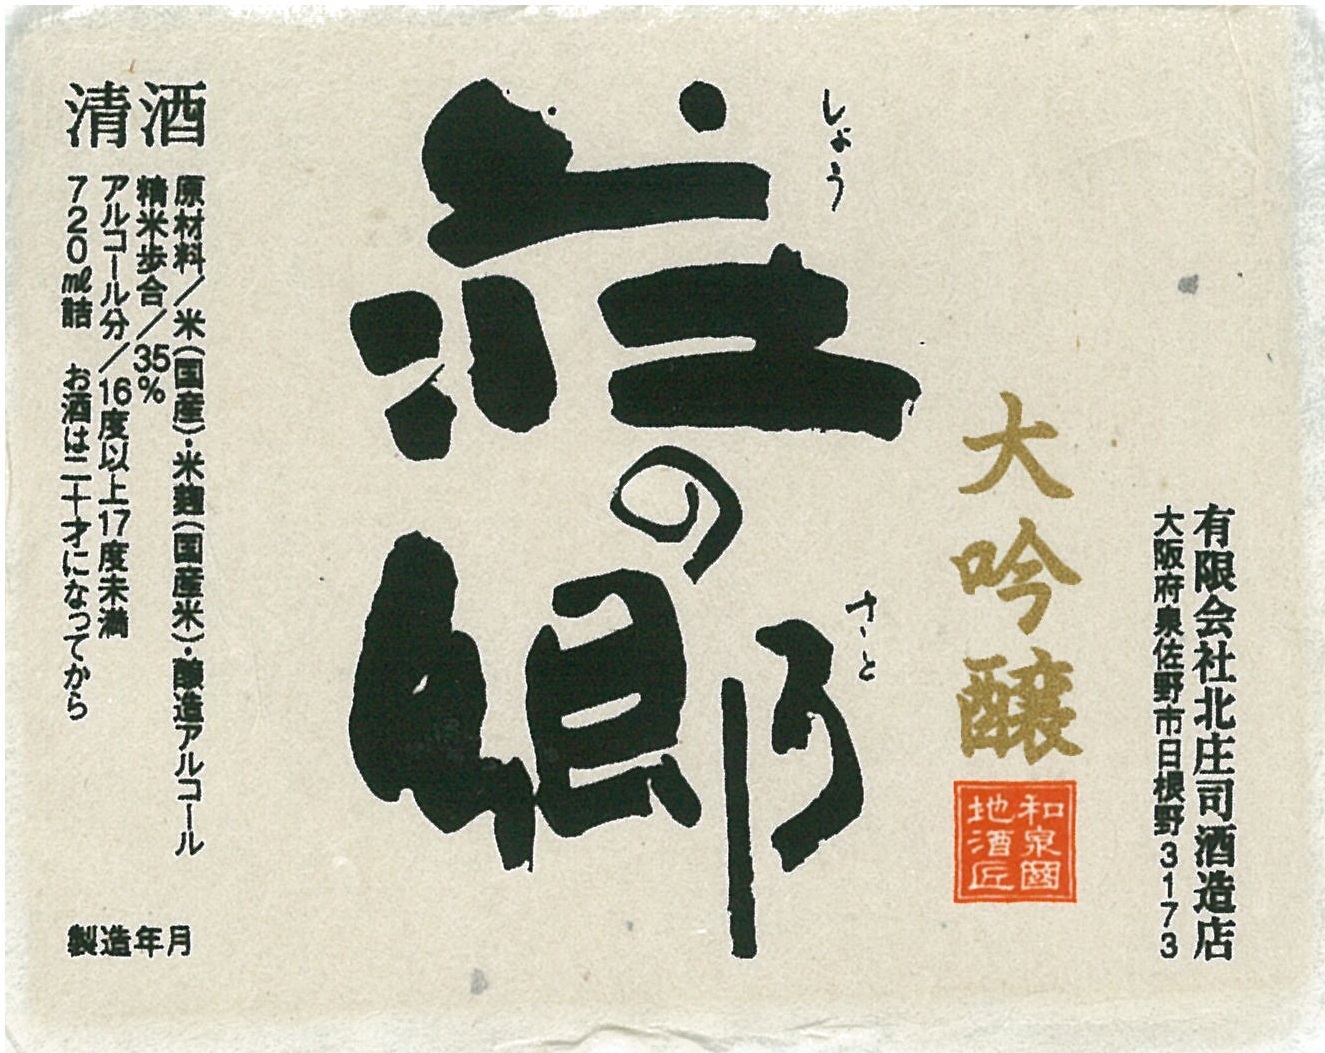 有限会社北庄司酒造店
大阪府泉佐野市日根野3173
大吟醸
和泉國
地酒匠
しょう
さと
荘の郷
清酒
原材料/米(国産)・米麹(国産米)・醸造アルコール
精米歩合/35%
アルコール分/16度以上17度未満
720㎖詰 お酒は二十才になってから
製造年月